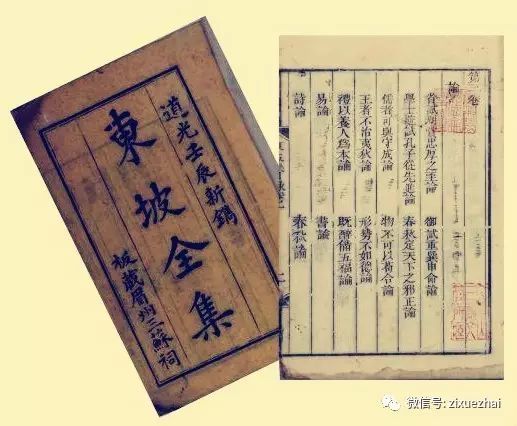 道光壬辰新鐫
東坡全集
板藏眉州三蘇祠
第一卷
論
省試刑賞忠厚之至論 御試重巽申命論
學士院試孔子從先進論 春秋定天下之邪正論
儒者可與守成論 物不可以苟合論
王者不治夷狄論 形勢不如德論
禮以養人爲本論 既醉備五福論
易論 書論
詩論 春秋論
微信号: zixuezhai